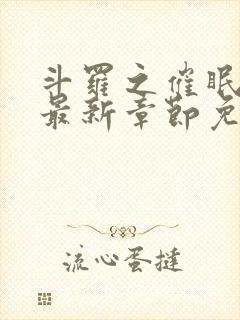 斗羅之催眠
最新章節免
流心蛋撻